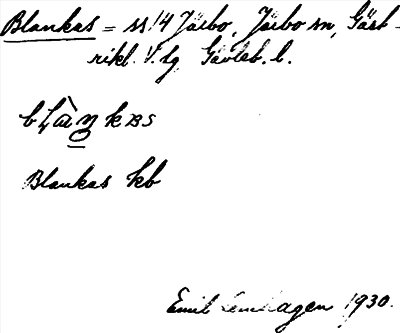 Blankas = ss 14 Järbo, Järbo sn, Gäst-
rikl. V. tg Gävleb. l.
Blankas kb
Emil Lindhagen 1930.